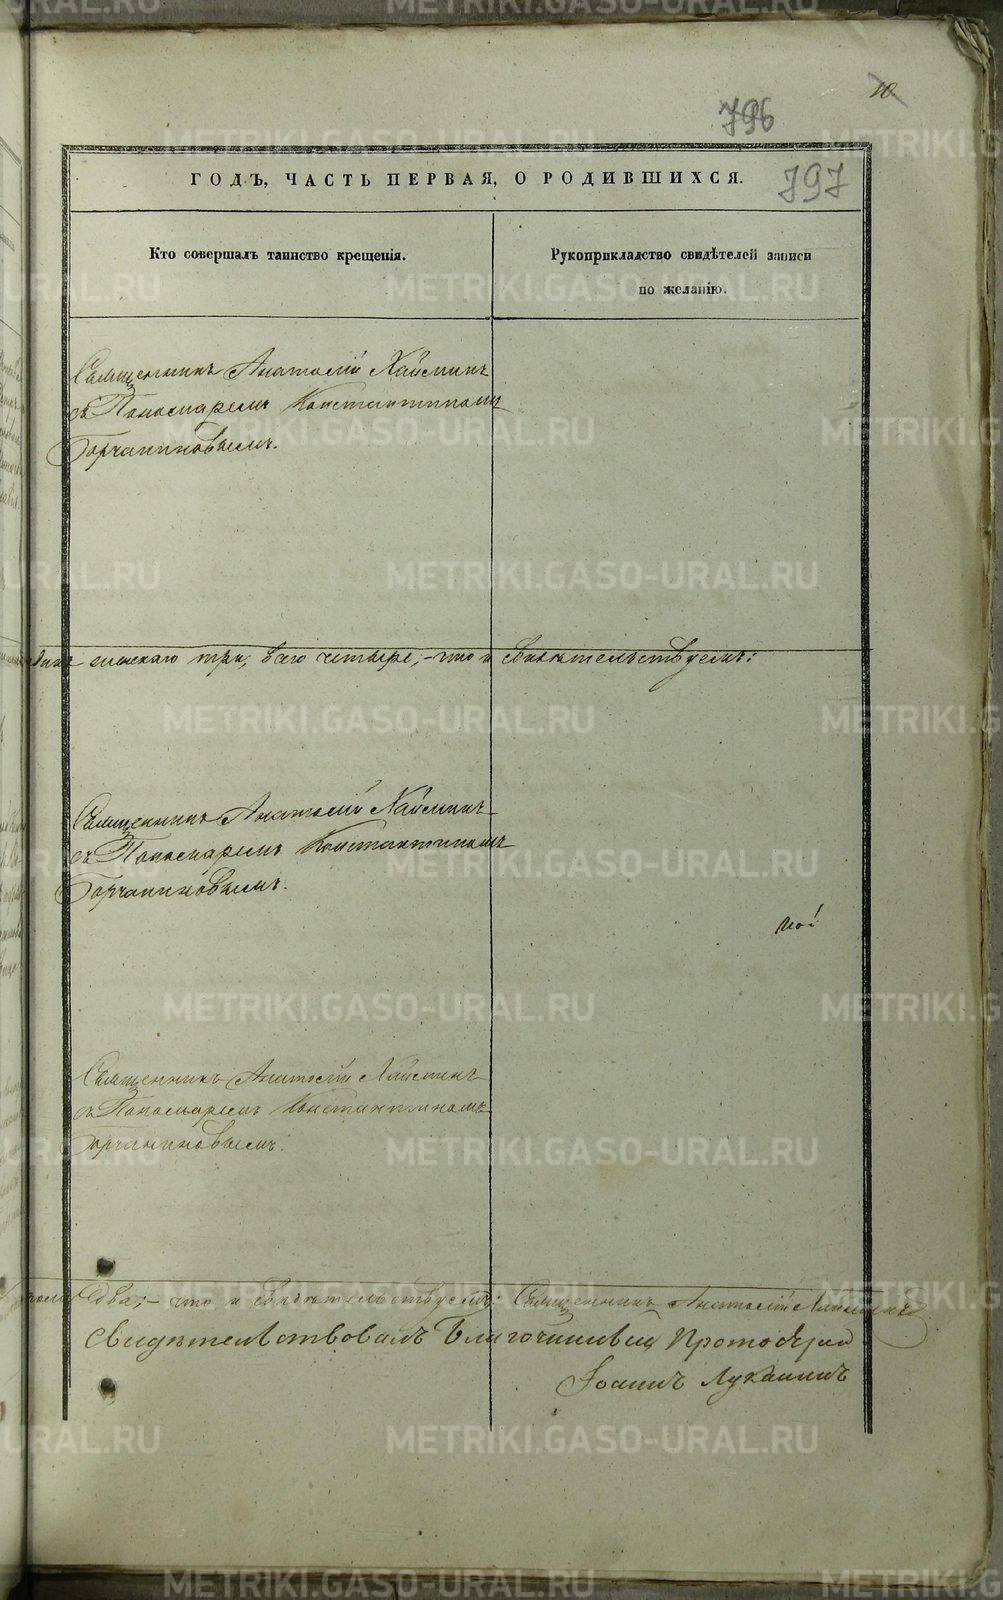 10
796
797
ГОДЪ, ЧАСТЬ ПЕРВАЯ, О РОДИВШИХСЯ.
Кто совершалъ таинство крещенія.
Рукоприкладство свидѣтелей записи
по желанію.
Священникъ Анатолій Хайминъ
съ Пономаремъ Константиномъ
Горчаниновымъ.
женскаго три, всего четыре; – что и свидѣтельствуемъ:
Священникъ Анатолій Хайминъ
съ Пономаремъ Константиномъ
Горчаниновымъ.
Священникъ Анатолій Хайминъ
съ Пономаремъ Константиномъ
Горчаниновымъ.
два; – что и свидѣтельствуемъ: Священникъ Анатолій Хайминъ
Свидѣтельствовалъ Благочинный Протоіерей
Іоаннъ Луканинъ
METRIKI.GASO-URAL.RU